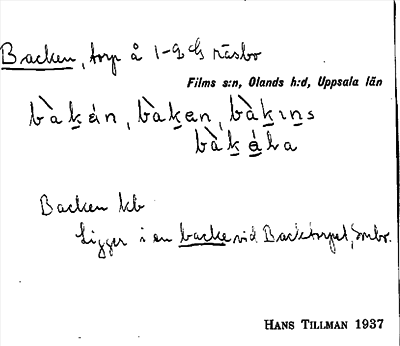 Backen, torp å 1-2 G Råsbo
Films s:n, Olands h:d, Uppsala län
bàkán, bàken, bàkıns
bàkáɫa
Backen kb
Ligger i en backe vid Backtorpet,
HANS TILLMAN 1937